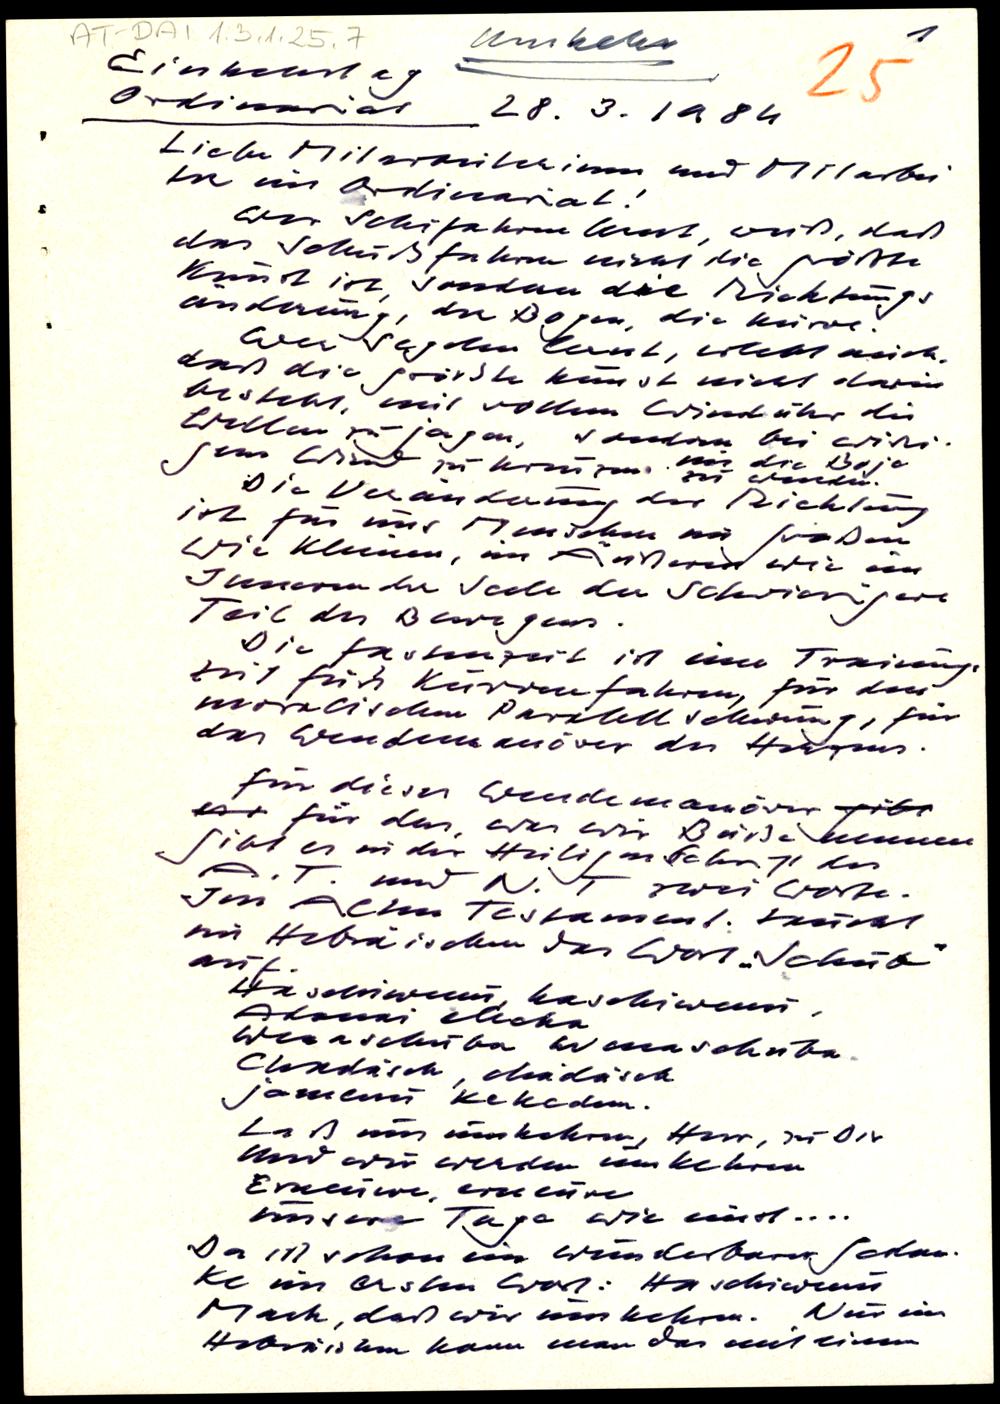 AT-DAI 1.3.1.25.7
Umkehr
1
25
Einkehrtag
Ordinariat 28. 3. 1984
Liebe Mitarbeiterinnen und Mitarbei
ter im Ordinariat!
Wer Schifahren lernt, weiß, daß
das Schußfahren nicht die größte
Kunst ist, sondern die Richtungs
änderung, der Bogen, die Kurve.
Wer Segeln lernt, erlebt auch.
daß die größte Kunst nicht darin
besteht, mit vollem Wind über die
Wellen zu jagen, sondern bei widri.
gem Wind zu kreuzen. um die Boje
zu wenden.
Die Veränderung der Richtung
ist für uns Menschen im Großen
wie Kleinen, im Äußeren wie im
Inneren der Seele der Schwierigere
Teil des Bewegens.
Die Fastenzeit ist eine Trainings
zeit fürs Kurvenfahren, für den
moralischen Parallelschwung, für
das Wendemanöver des Herzens.
Für dieses Wendemanöver gibt
es für das, was wir Buße nennen
gibt es in der Heiligen Schrift des
A.T. und N.T zwei Worte.
Im Alten Testament. taucht
im Hebräischen das Wort „Schub"
auf.
Haschiwenu, haschiwenu,
Adonai elecha
Wenaschuba Wenaschuba.
Chadasch, chadasch
jamenu kekedem.
Laß uns umkehren, Herr, zu Dir
Und wir werden umkehren
Erneure, erneure
unsere Tage wie einst....
Da ist schon ein wunderbarer Gedan.
ke im ersten Wort: Haschiwenu
Mach, daß wir umkehren. Nur im
Hebräischen kann man das mit einem